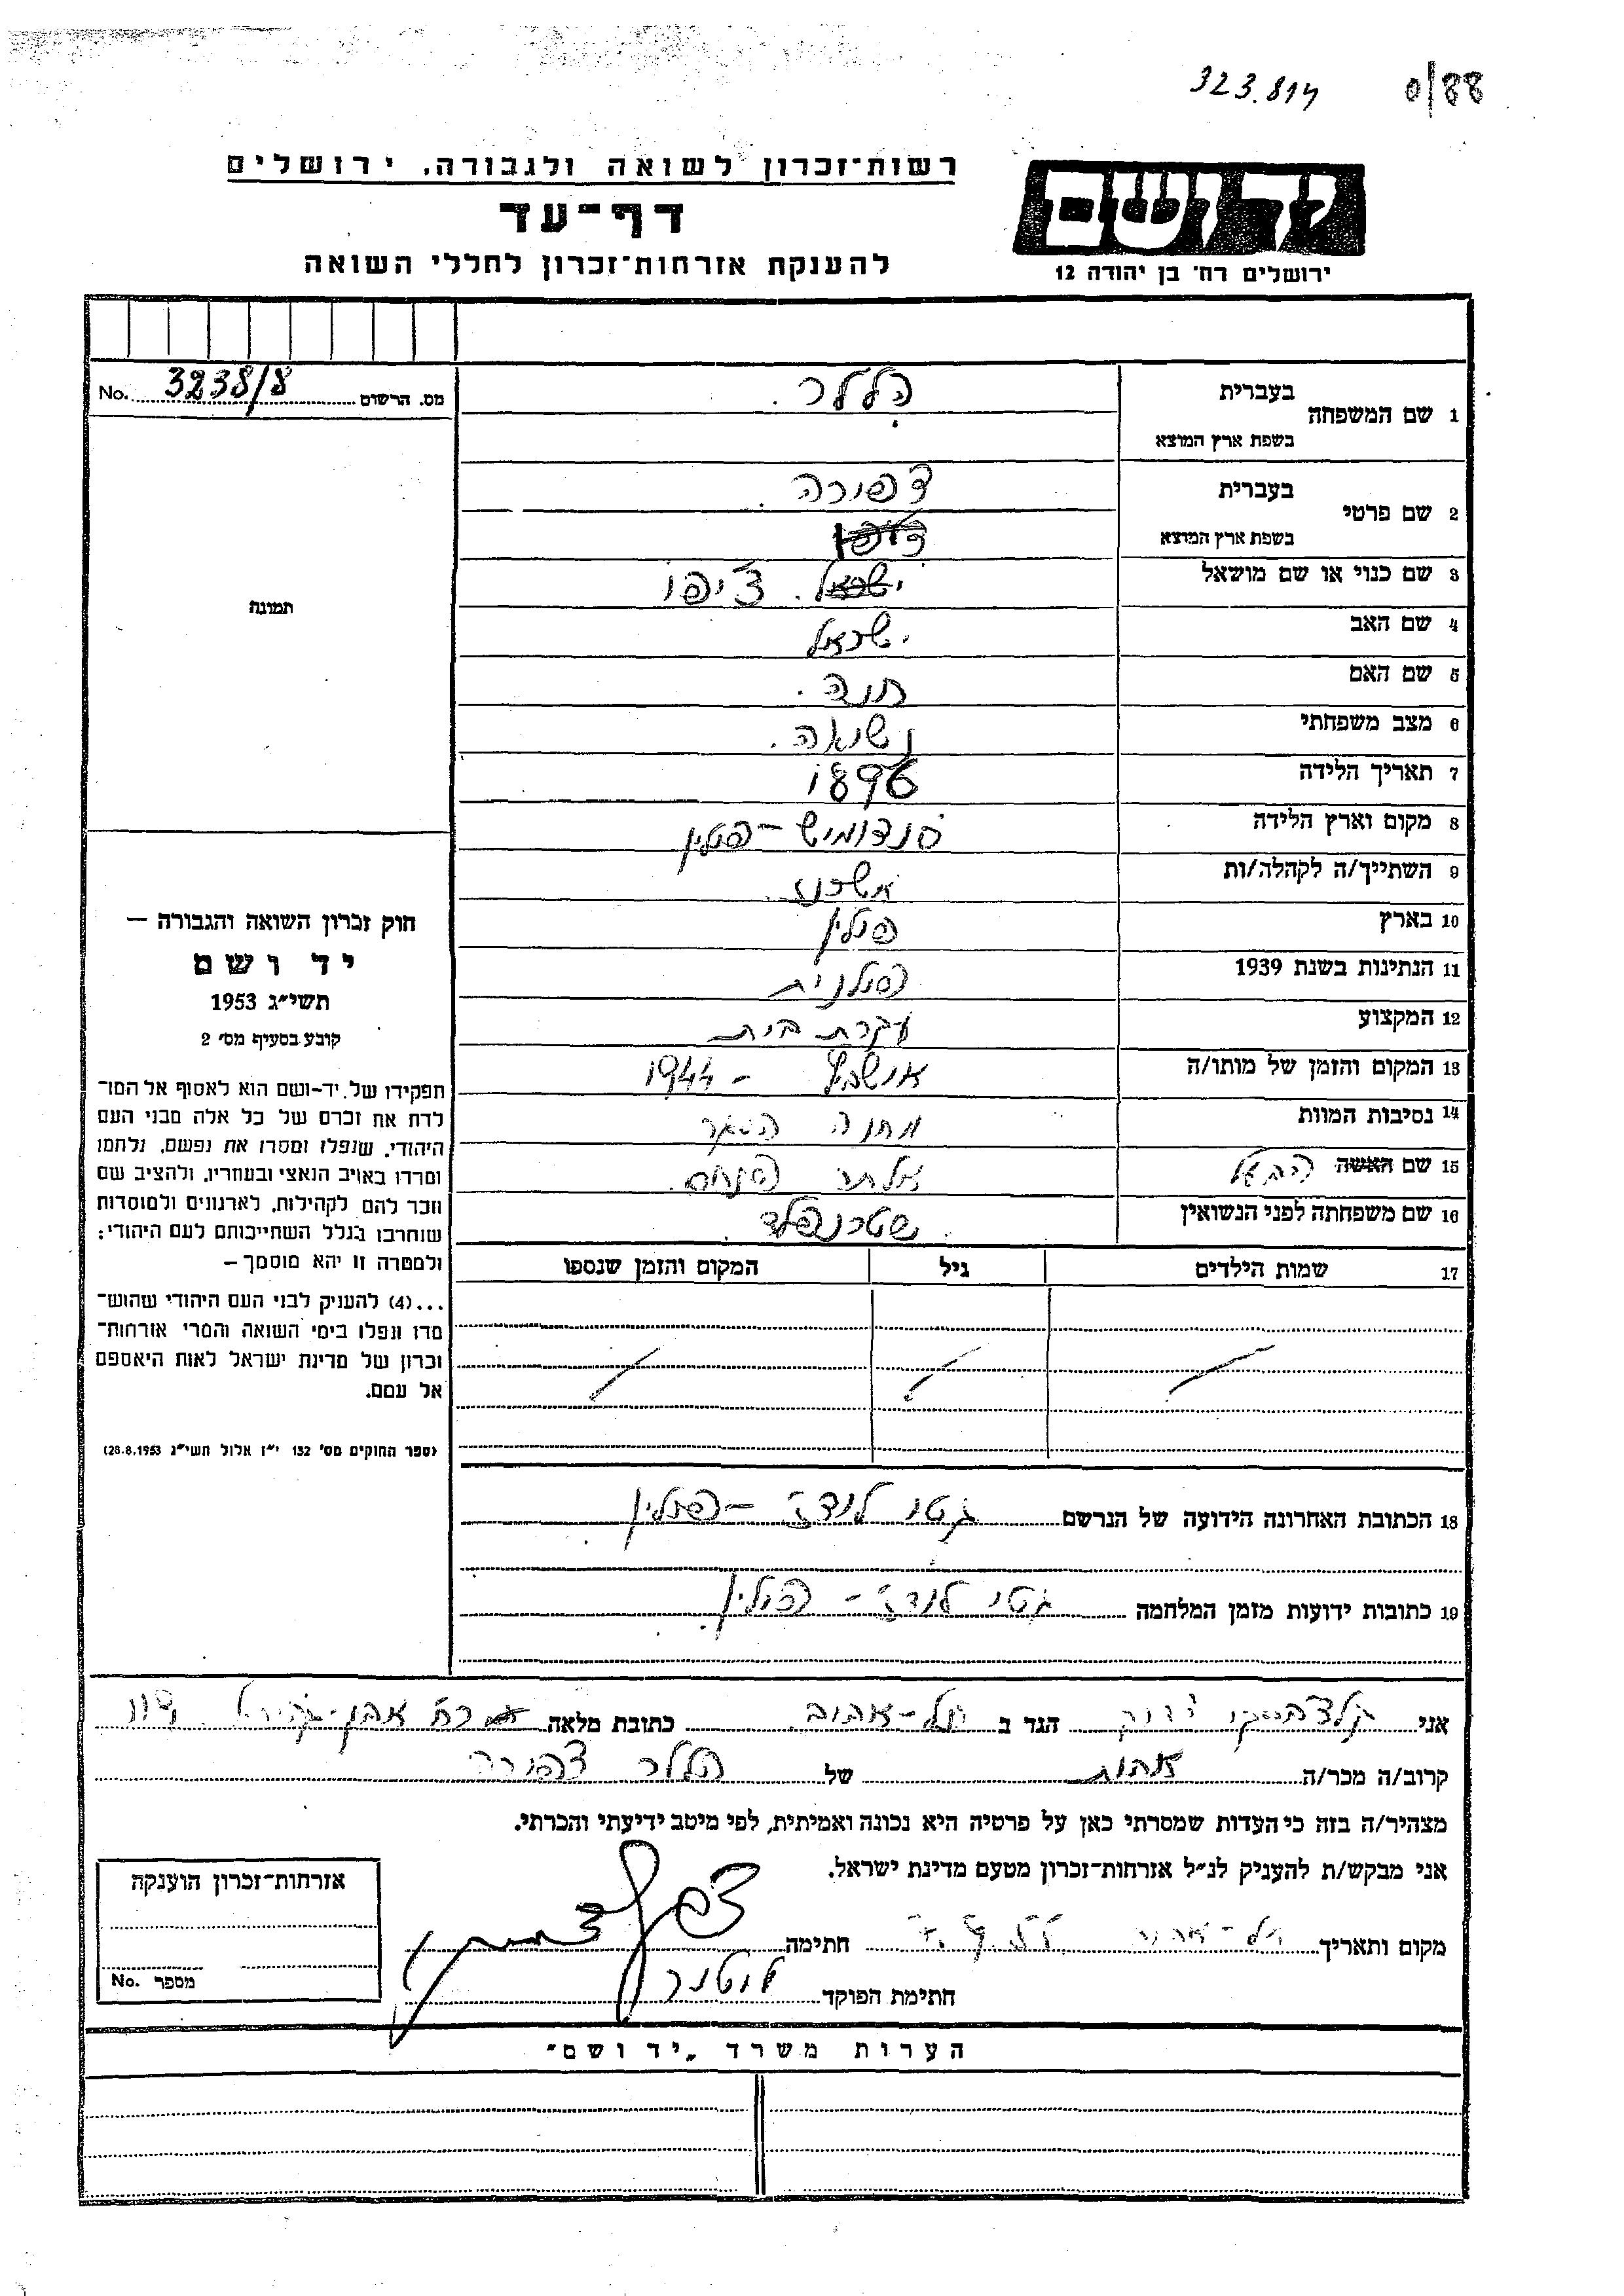 323.814 0/88
רשות־זכרון לשואה ולגבורה, ירושלים
יד ושם
דף־עד
להענקת אזרחות־זכרון לחללי השואה
ירושלים רח' בן יהודה 12
מס. הרשום 3238/8 No.
1 שם המשפחה
בעברית הללר
בשפת ארץ המוצא
2 שם פרטי
בעברית צפורה
בשפת ארץ המוצא
3 שם כנוי או שם מושאל ישראל. ציפו
4 שם האב ישראל
5 שם האם חנה.
6 מצב משפחתי נשואה.
7 תאריך הלידה 1896
8 מקום וארץ הלידה סנדומיש - פולין
9 השתייך/ה לקהלה/ות אשכנז
10 בארץ פולין
11 הנתינות בשנת 1939 פולנית
12 המקצוע עקרת בית
13 המקום והזמן של מותו/ה אושביץ - 1944
14 נסיבות המוות מחנה הסגר
15 שם האשה הבעל אלתר פנחס
16 שם משפחתה לפני הנשואין שטרנפלד
17 שמות הילדים גיל המקום והזמן שנספו
18 הכתובת האחרונה הידועה של הנרשם גטו לודז - פולין
19 כתובות ידועות מזמן המלחמה גטו לודז - פולין
תמונה
חוק זכרון השואה והגבורה —
יד ושם
תשי״ג 1953
קובע בסעיף מס' 2
תפקידו של יד־ושם הוא לאסוף אל המו־
לדת את זכרם של כל אלה מבני העם
היהודי, שנפלו ומסרו את נפשם, נלחמו
ומרדו באויב הנאצי ובעוזריו, ולהציב שם
וזכר להם לקהילות, לארגונים ולמוסדות
שנחרבו בגלל השתייכותם לעם היהודי;
ולמטרה זו יהא מוסמך —
...(4) להעניק לבני העם היהודי שהוש־
מדו ונפלו בימי השואה והמרי אזרחות־
זכרון של מדינת ישראל לאות היאספם
אל עמם.
(ספר החוקים מס' 132 י״ז אלול תשי״ג 28.8.1953)
אני הגר ב תל-אביב כתובת מלאה רח אבן-גבירול
קרוב/ה מכר/ה אחות של הללר צפורה
מצהיר/ה בזה כי העדות שמסרתי כאן על פרטיה היא נכונה ואמיתית, לפי מיטב ידיעתי והכרתי.
אני מבקש/ת להעניק לנ״ל אזרחות־זכרון מטעם מדינת ישראל.
מקום ותאריך תל-אביב חתימה
חתימת הפוקד
אזרחות־זכרון הוענקה
מספר No.
הערות משרד „יד ושם״